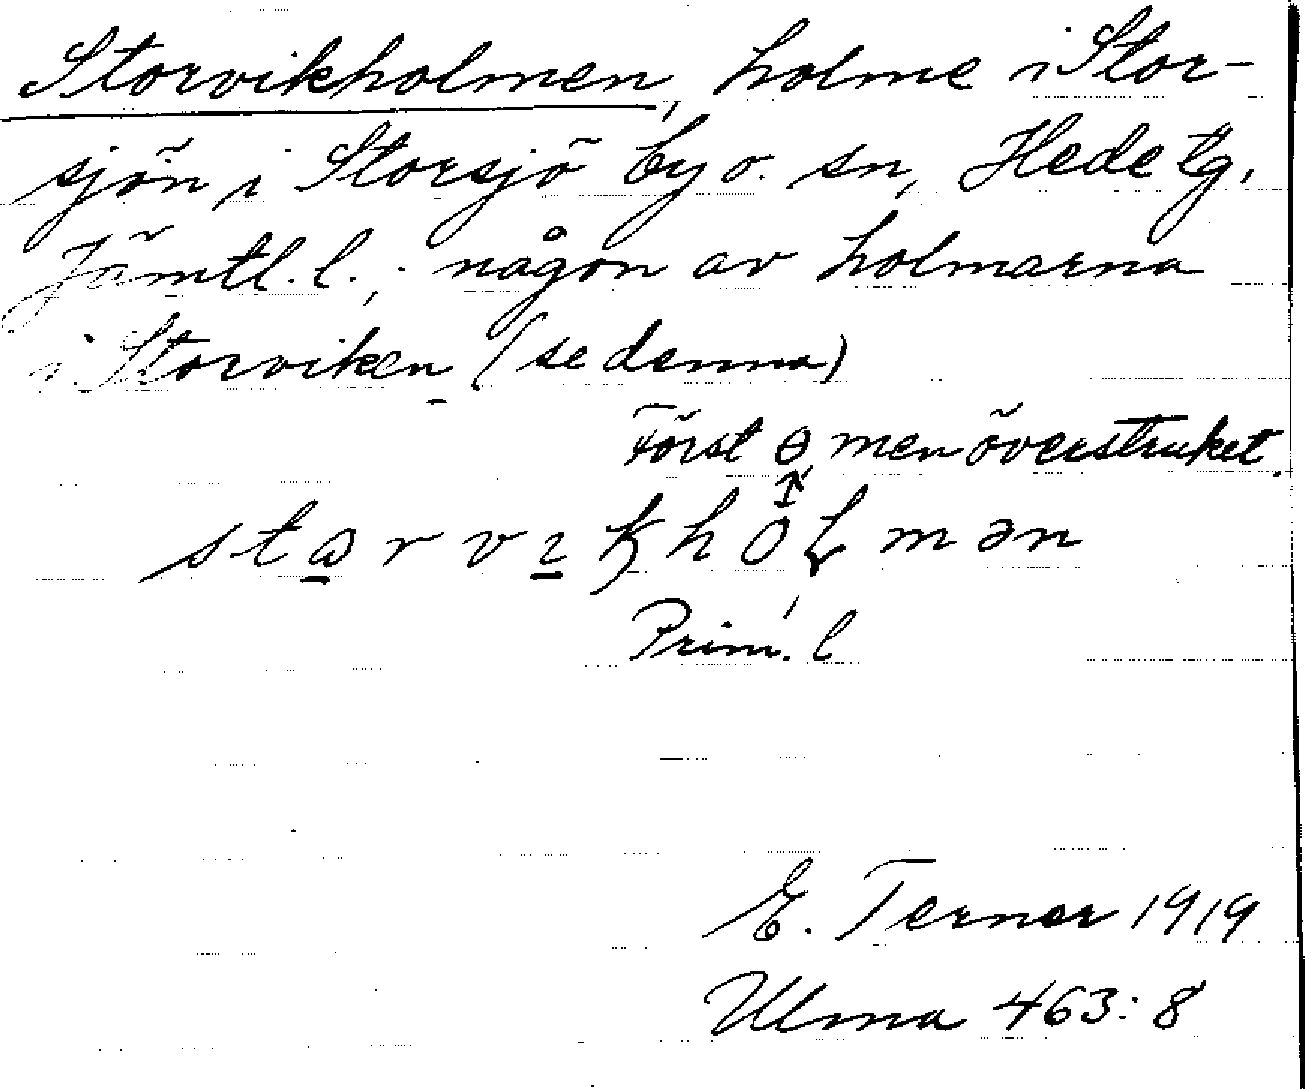 Storvikholmen, holme i Stor-
sjön i Storsjö by o. sn, Hede tg,
Jämtl. l.; någon av holmarna
i Storviken (se denna)
Först ө men överstruket.
Prim. l
E. Terner 1919
Ulma 463:8